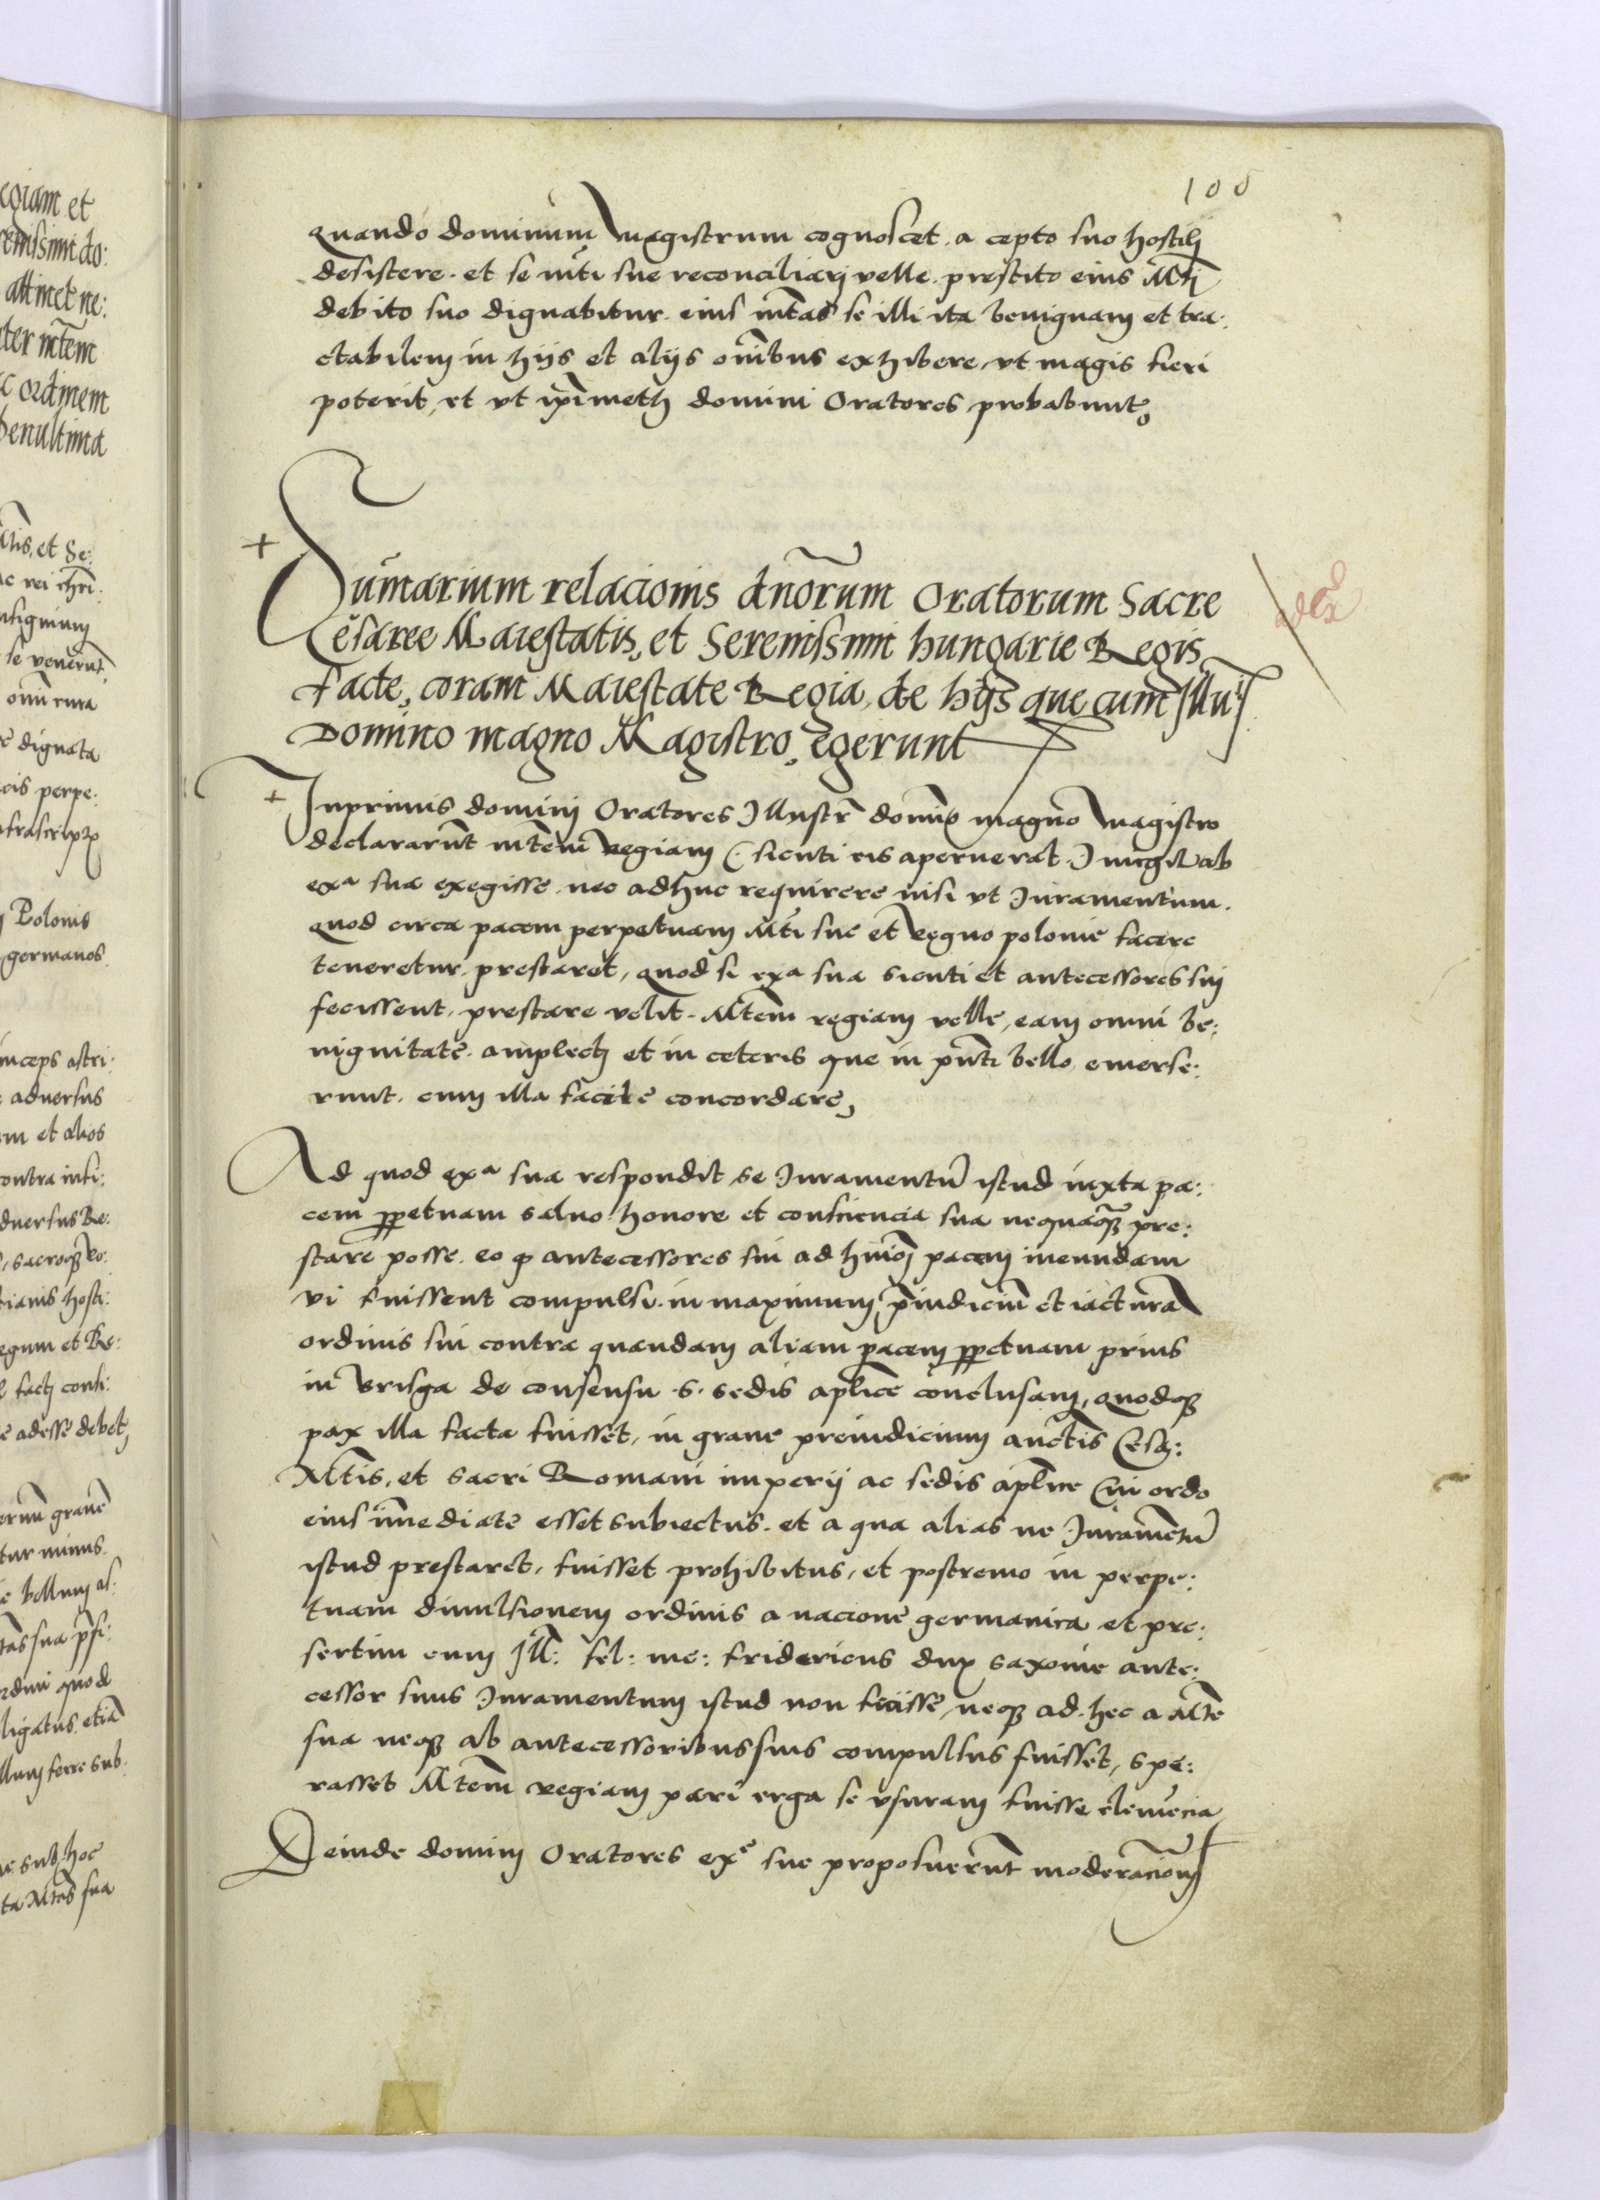 100
quando dominum magistrum cognoscet a cepto suo hostili
desistere. et se mti sue reconciliari velle. prestito eius Mti
debito suo dignabitur. eius mtas se illi ita benignam et tra:
ctabilem in hijs et alijs omibus exhibere, vt magis fieri
poterit, et vt ipimeth domini Oratores probabunt,
Sumarium relacionis dnorum Oratorum Sacre
Cesaree Maiestatis, et Serenissimi hungarie Regis
facte, coram Maiestate Regia, de hijs que cum Illu
Domino magno Magistro, egerunt
Inprimis domini Oratores Illustri domino magno magistro
declararunt mtem regiam (: sicuti eis aperuerat :) nichil ab
exa sua exegisse. nec adhuc requirere nisi vt Iuramentum.
quod circa pacem perpetuam Mti sue et regno polonie facere
teneretur. prestaret, quod si exa sua sicuti et antecessores sui
fecissent, prestare velit. Mtem regiam velle, eam omni be:
nignitate. amplecti et in ceteris que in pnti bello emerse:
runt. cum illa facile concordare,
Ad quod exa sua respondit se Iuramentu istud iuxta pa:
cem ppetuam saluo honore et consciencia sua nequaq pre:
stare posse. eo q antecessores sui ad hmoi pacem ineundam
vi fuissent compulsi. in maximum piudicium et iactura
ordinis sui contra quandam aliam pacem ppetuam prius
in brisga de consensu .s. sedis aplice conclusam, quodq
pax illa facta fuisset, in graue preiudicium auctis Ces:
Mtis, et sacri Romani imperij ac sedis aplice cui ordo
eius immediate esset subiectus. et a qua alias ne Iuramentu
istud prestaret, fuisset prohibitus, et postremo in perpe:
tuam diuulsionem ordinis a nacione germanica et pre:
sertim cum Ill: fel: me: fridericus dux saxonie ante:
cessor suus Iuramentum istud non fecisse, neq ad hec a Mte
sua neq ab antecessoribus suis compulsus fuisset, spe:
rasset Mtem regiam pari erga se vsuram fuisse clemencia
Deinde domini Oratores exe sue proposuerunt moderacionem